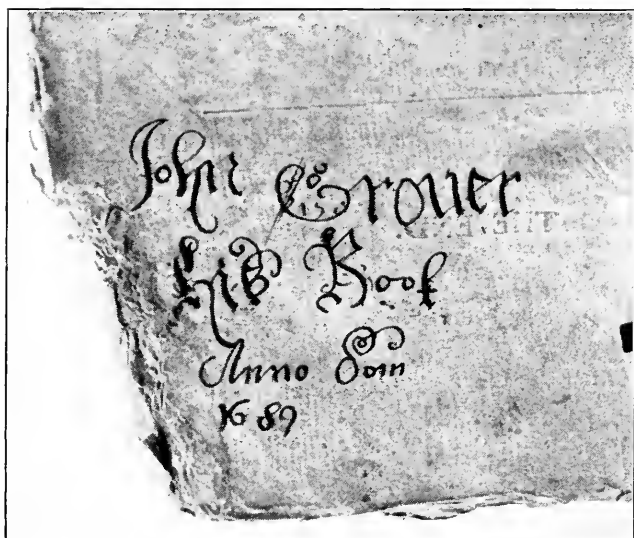 John Grouer
his Book
Anno Dom
1689